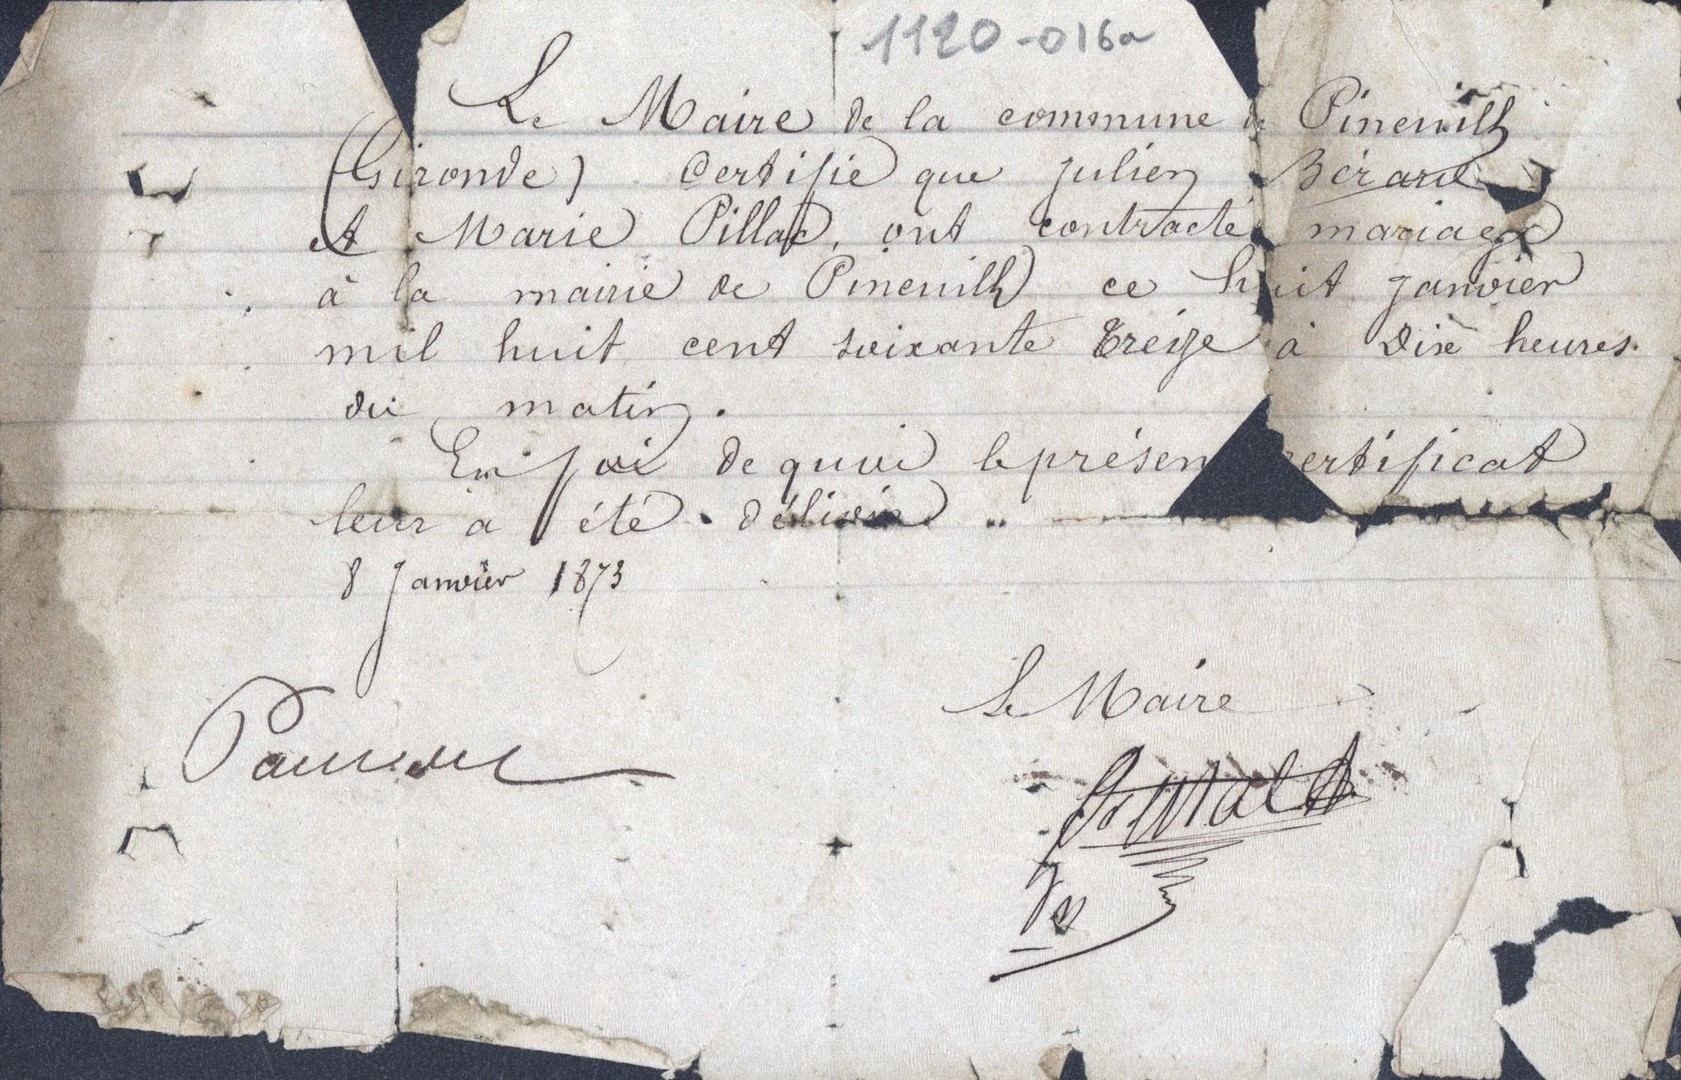 1120-016a
Le Maire de la commune de Pineuilh
(Gironde) Certifie que Julien Bérard
et Marie Pillac, ont contracté mariage
à la mairie de Pineuilh ce huit Janvier
mil huit cent soixante treize à dix heures
du matin.
En foi de quoi le présen ertificat
leur a été délivré
8 Janvier 1873
Le Maire